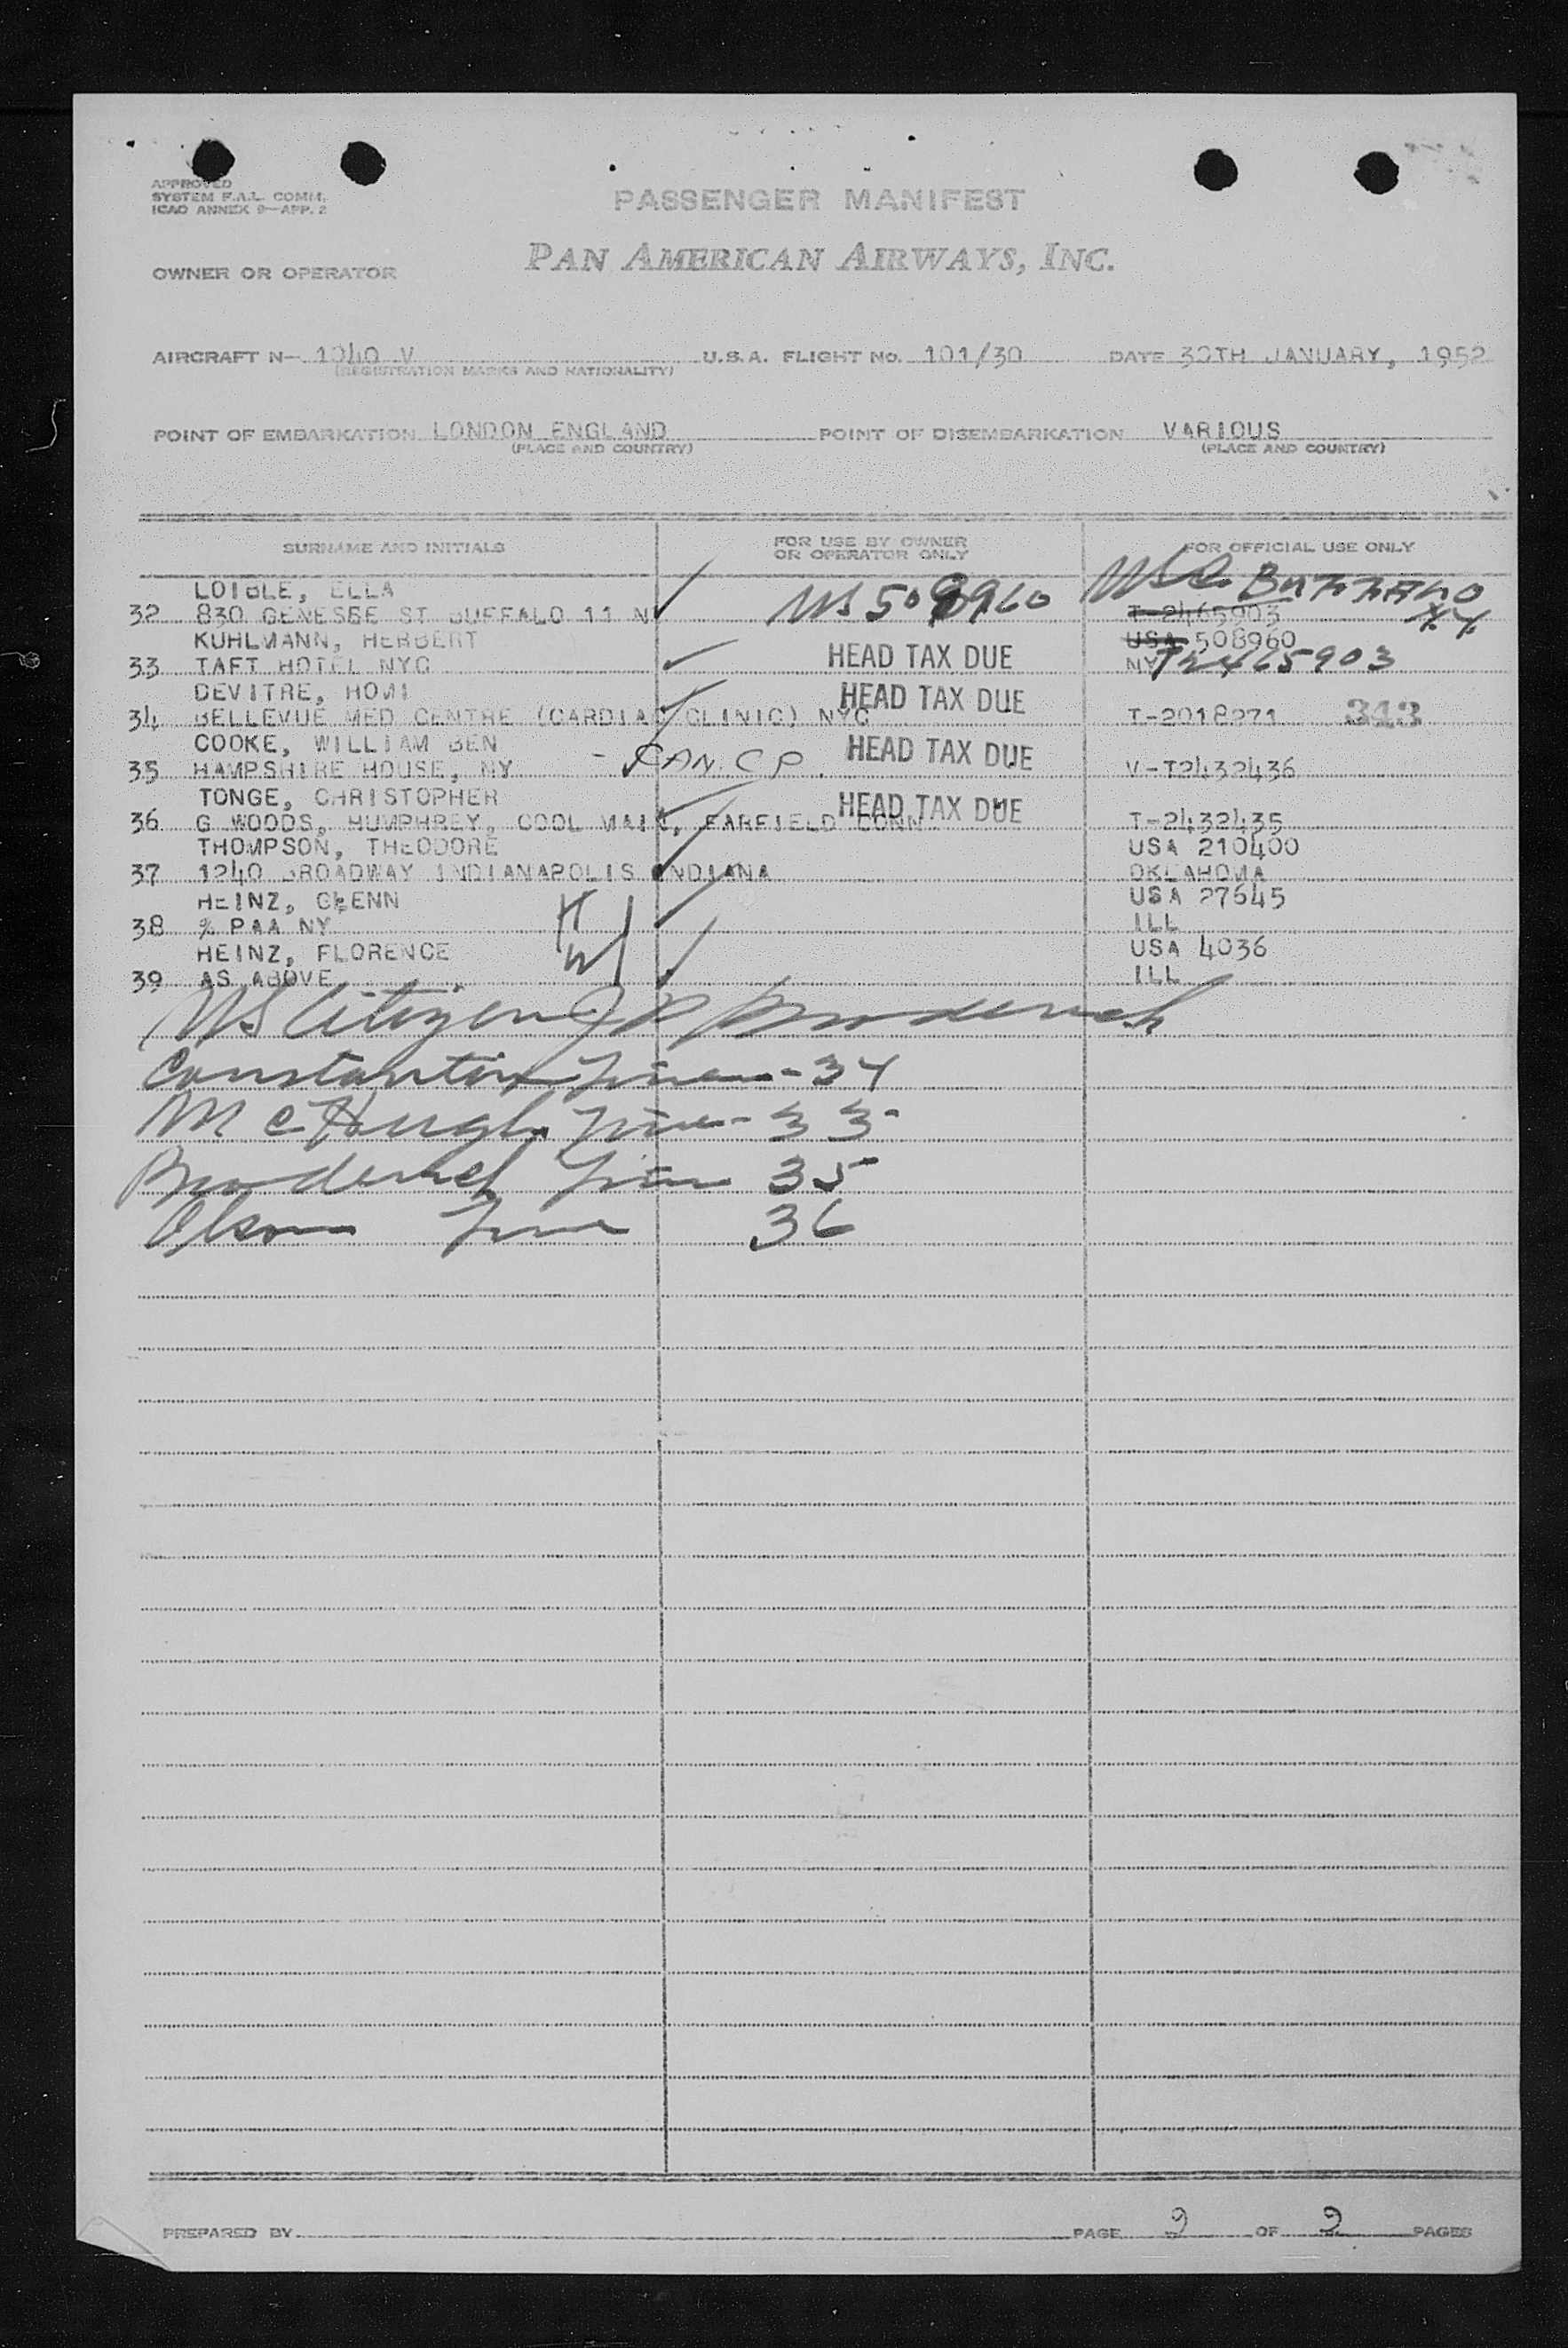 APPROVED
SYSTEM F.A.L. COMM.
ICAO ANNEX 9—APP. 2
PASSENGER MANIFEST
OWNER OR OPERATOR PAN AMERICAN AIRWAYS, INC.
AIRCRAFT N— 1040 V U.S.A. FLIGHT No. 101/30 DATE 30TH JANUARY, 1952
(REGISTRATION MARKS AND NATIONALITY)
POINT OF EMBARKATION LONDON ENGLAND POINT OF DISEMBARKATION VARIOUS
(PLACE AND COUNTRY) (PLACE AND COUNTRY)
SURNAME AND INITIALS FOR USE BY OWNER OR OPERATOR ONLY FOR OFFICIAL USE ONLY
LOIBLE, ELLA USC BUFFALO
32 830 GENESEE ST BUFFALO 11 N US 508960 T-2465903 N.Y.
KUHLMANN, HERBERT USA 508960
33 TAFT HOTEL NYC HEAD TAX DUE NY T2465903
DEVITRE, HOMI HEAD TAX DUE
34 BELLEVUE MED CENTRE (CARDIAC CLINIC) NYC T-2018271 343
COOKE, WILLIAM BEN HEAD TAX DUE
35 HAMPSHIRE HOUSE, NY - CAN. C P. V-T2432436
TONGE, CHRISTOPHER HEAD TAX DUE
36 G WOODS, HUMPHREY, COOL MAIL, FARFIELD CONN T-2432435
THOMPSON, THEODORE USA 210400
37 1240 BROADWAY INDIANAPOLIS INDIANA OKLAHOMA
HEINZ, GLENN USA 27645
38 % PAA NY H ILL
HEINZ, FLORENCE W USA 4036
39 AS ABOVE ILL
US Citizen J P Broderick
Constantin line - 34
McHugh line - 33
Broderick line 35
Olson line 36
PREPARED BY PAGE 2 OF 2 PAGES